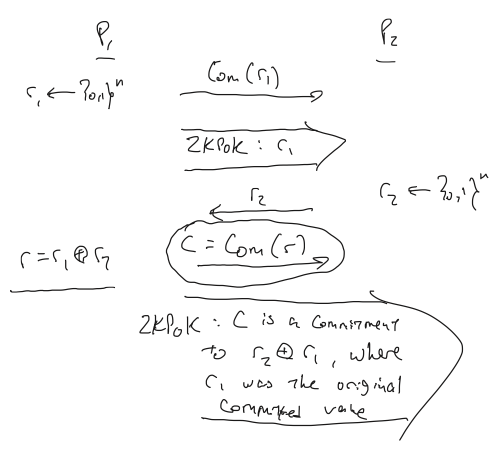 P₁ P₂
r₁ ← {0,1}ⁿ
Com(r₁)
ZKPoK : r₁
r₂
r₂ ← {0,1}ⁿ
C = Com(r)
r = r₁ ⊕ r₂
ZKPoK : C is a commitment
to r₂ ⊕ r₁, where
r₁ was the original
committed value